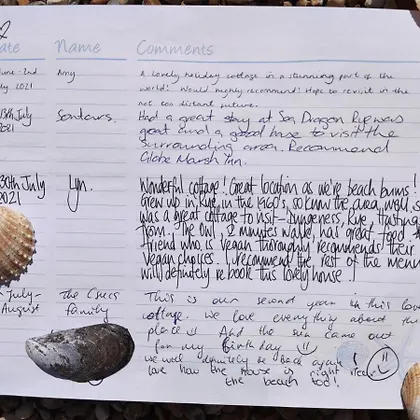 2
ate Name Comments
June-2nd Amy A lovely holiday cottage in a stunning part of the
July 2021 world! Would highly recommend! Hope to revisit in the
not too distant future.
13th July Had a great stay at Sea Dragon Rye was
2021 great and a good base to visit the
surrounding area. Recommend
Globe Marsh Inn.
30th July Lyn. Wonderful cottage! Great location as we're beach bums!
2021 Grew up in Rye in the 1960's, so know the area well, so
was a great cottage to visit - Dungeness, Rye, Hastings
from. The Owl, 2 minutes walk, has great food
friend who is vegan thoroughly recommends their
vegan choices. I recommend the rest of the menu
will definitely re book this lovely house!
July- The family This is our second year in this love
August cottage. we love everything about the
place And the sun came out
for my birthday
we will definitely be back again!
love how the house is right near
the beach too!